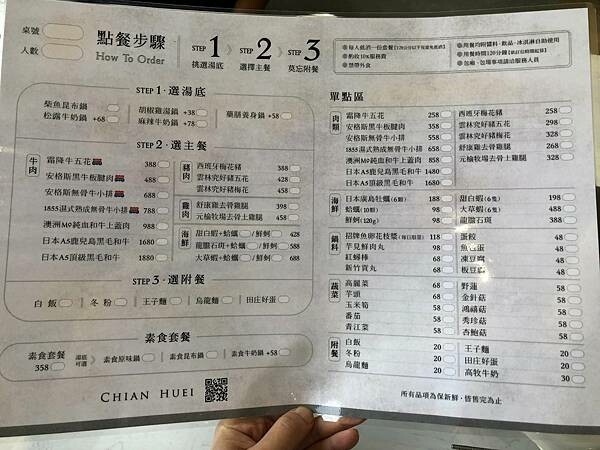 桌號
人數
點餐步驟
How To Order
STEP 1 挑選湯底
STEP 2 選擇主餐
STEP 3 莫忘附餐
每人低消一份套餐
酌收10%服務費
禁帶外食
用餐均附醬料、飲品、冰淇淋自助使用
用餐時間120分鐘
包廂、包場事項請洽服務人員
STEP 1・選湯底
柴魚昆布鍋
胡椒雞湯鍋 +38
藥膳養身鍋 +58
松露牛奶鍋 +68
麻辣牛奶鍋 +78
STEP 2・選主餐
牛肉
霜降牛五花 388
安格斯黑牛板腱肉 488
安格斯無骨牛小排 688
1855濕式熟成無骨牛小排 788
澳洲M9純血和牛上蓋肉 988
日本A5鹿兒島黑毛和牛 1680
日本A5頂級黑毛和牛 1680
豬肉
西班牙梅花豬 388
雲林究好豬五花 428
雲林究好豬梅花 458
雞肉
舒康雞去骨雞腿 458
元榆牧場去骨土雞腿 498
海鮮
甜白蝦+蛤蠣 /鮮蚵 428
龍膽石斑+蛤蠣 /鮮蚵 588
大草蝦+蛤蠣 /鮮蚵 688
STEP 3・選附餐
白飯
冬粉
王子麵
烏龍麵
田庄好蛋
素食套餐
素食套餐 358
湯底可選
素食原味鍋
素食昆布鍋
素食牛奶鍋 +58
CHIAN HUEI
單點區
肉類
霜降牛五花 258
安格斯黑牛板腱肉 358
安格斯無骨牛小排 558
1855濕式熟成無骨牛小排 658
澳洲M9純血和牛上蓋肉 858
日本A5鹿兒島黑毛和牛 1480
日本A5頂級黑毛和牛 1480
西班牙梅花豬 258
雲林究好豬五花 298
雲林究好豬梅花 328
舒康雞去骨雞腿 328
元榆牧場去骨土雞腿 368
海鮮
日本廣島牡蠣(6顆) 188
蛤蠣(10顆) 98
鮮蚵(120g) 98
甜白蝦(6隻) 198
大草蝦(6隻) 488
龍膽石斑 388
鍋料
招牌魚卵花枝漿(每日限量) 118
芋見鮮肉丸 98
紅蟳棒 68
新竹貢丸 68
蛋餃 48
凍豆腐 48
板豆腐 48
蔬菜
高麗菜 68
芋頭 68
玉米筍 68
番茄 68
青江菜 68
野蓮 68
金針菇 58
鴻禧菇 58
秀珍菇 58
杏鮑菇 58
附餐
白飯 20
冬粉 20
烏龍麵 20
王子麵 20
田庄好蛋 20
高牧牛奶 30
所有品項為保新鮮，皆售完為止